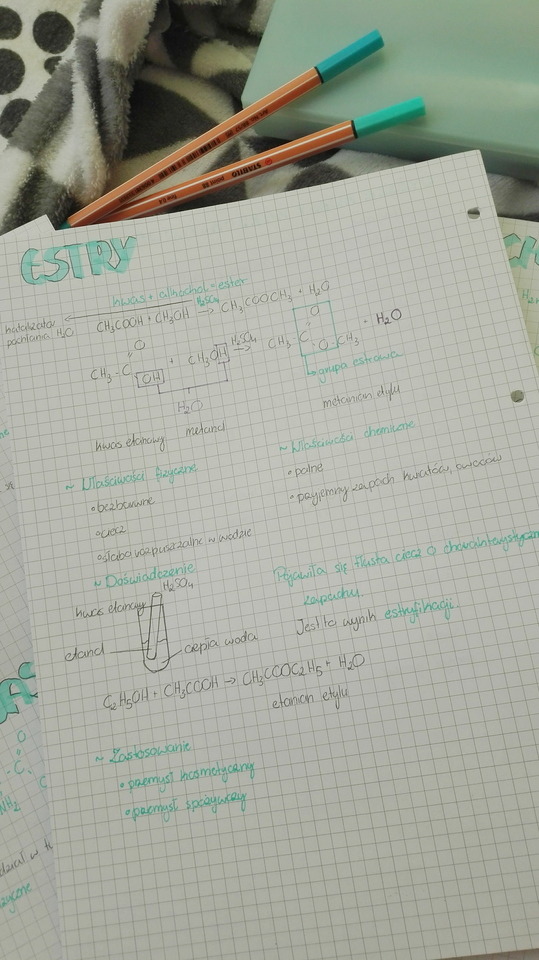 STABILO point 88 fine 0,4
ESTRY
kwas + alkohol = ester
katalizator
pochłania H₂O
CH₃COOH + CH₃OH H₂SO₄ → CH₃COOCH₃ + H₂O
CH₃-C O OH + CH₃OH H₂SO₄ → CH₃-C O O-CH₃ + H₂O
H₂O
grupa estrowa
kwas etanowy metanol
metanian etylu
~ Właściwości fizyczne
• bezbarwne
• ciecz
• słabo rozpuszczalne w wodzie
~ Właściwości chemiczne
• palne
• przyjemny zapach kwiatów, owoców
~ Doświadczenie
H₂SO₄
kwas etanowy
etanol
ciepła woda
Pojawiła się tłusta ciecz o
zapachu.
Jest to wynik estryfikacji
C₂H₅OH + CH₃COOH → CH₃COOC₂H₅ + H₂O
etanian etylu
~ Zastosowanie
• przemysł kosmetyczny
• przemysł spożywczy
NH₂